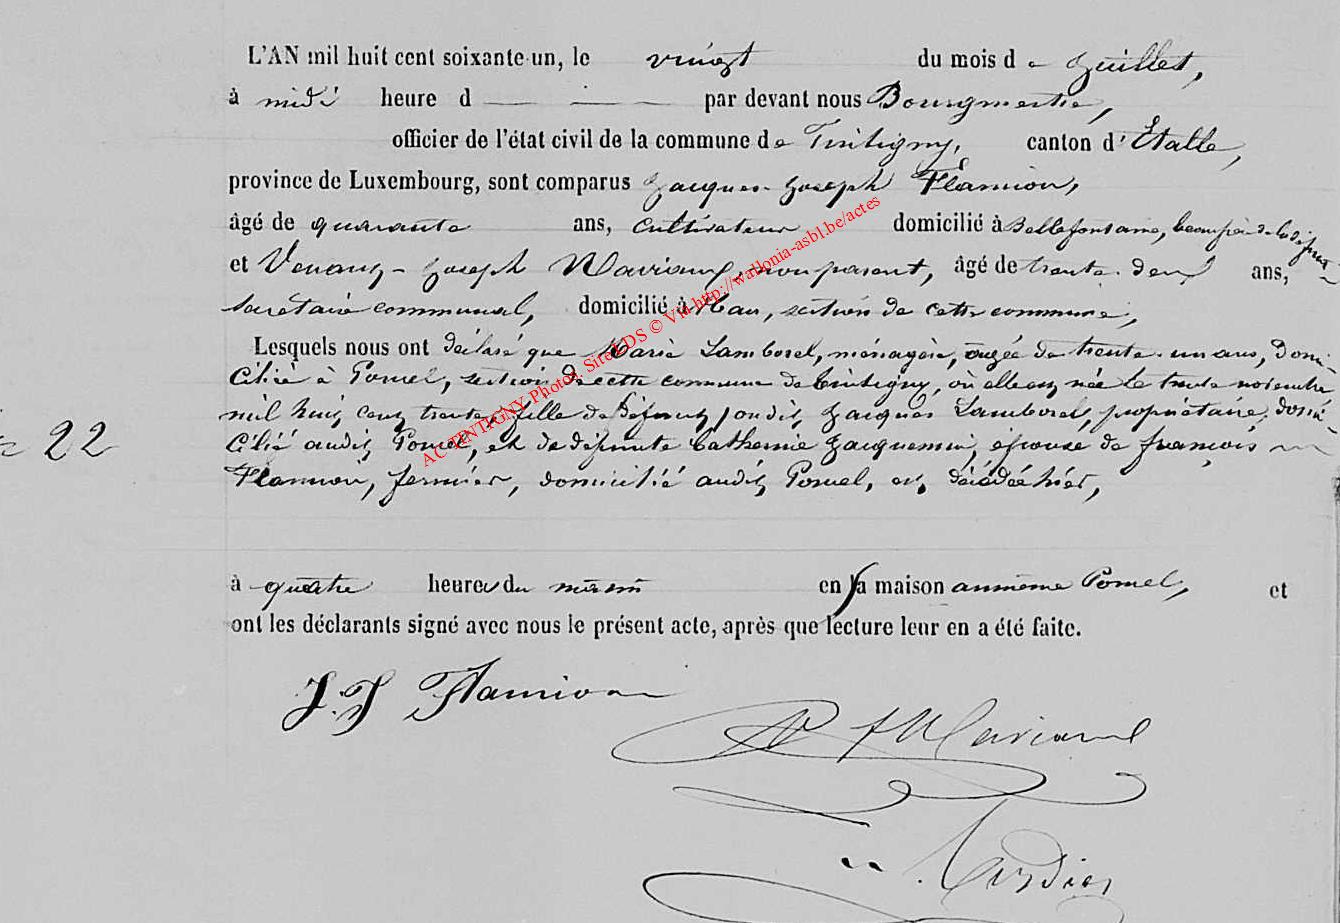 L'AN mil huit cent soixante-un, le vingt du mois de Juillet,
à midi heure d par devant nous Bourgmestre,
officier de l'état civil de la commune de Tintigny, canton d'Étalle,
province de Luxembourg, sont comparus Jacques-Joseph Flamion,
âgé de quarante ans, cultivateur domicilié à Bellefontaine, beau-père de la défunte
et Venant-Joseph Maviaux, non parent, âgé de trente-deux ans,
secrétaire communal, domicilié à Han, section de cette commune,
Lesquels nous ont déclaré que Marie Lamborel, ménagère, âgée de trente-un ans, domi-
ciliée à Poncel, section de cette commune de Tintigny, où elle est née le trente novembre
mil huit cent trente, fille de défunt Jacques Lamborel, propriétaire, domi-
N° 22
cilié audit Poncel, et de défunte Catherine Jacquemin, épouse de François
Flamion, fermier, domicilié audit Poncel, est décédée hier,
à quatre heures du matin en la maison au même Poncel, et
ont les déclarants signé avec nous le présent acte, après que lecture leur en a été faite.
J. J Flamion
AC TINTIGNY Photos, Sites DS © Via http://wallonia-asbl.be/actes